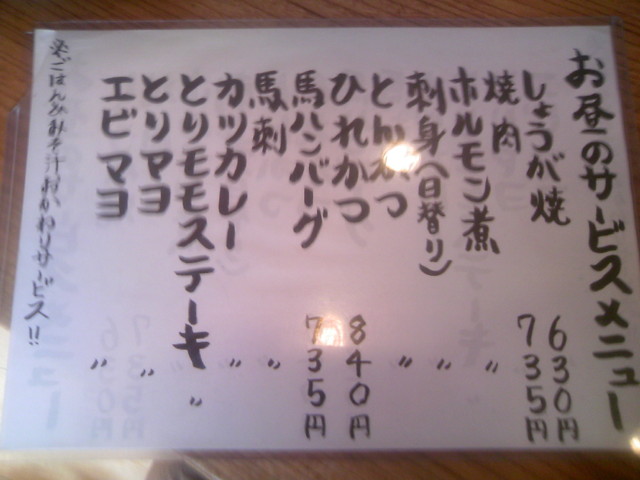 お昼のサービスメニュー
しょうが焼 630円
焼肉 735円
ホルモン煮 〃
刺身(日替り) 〃
とんかつ 〃
ひれかつ 840円
馬ハンバーグ 735円
馬刺 〃
カツカレー 〃
とりモモステーキ 〃
とりマヨ 〃
エビマヨ 〃
※ごはんみそ汁おかわりサービス!!